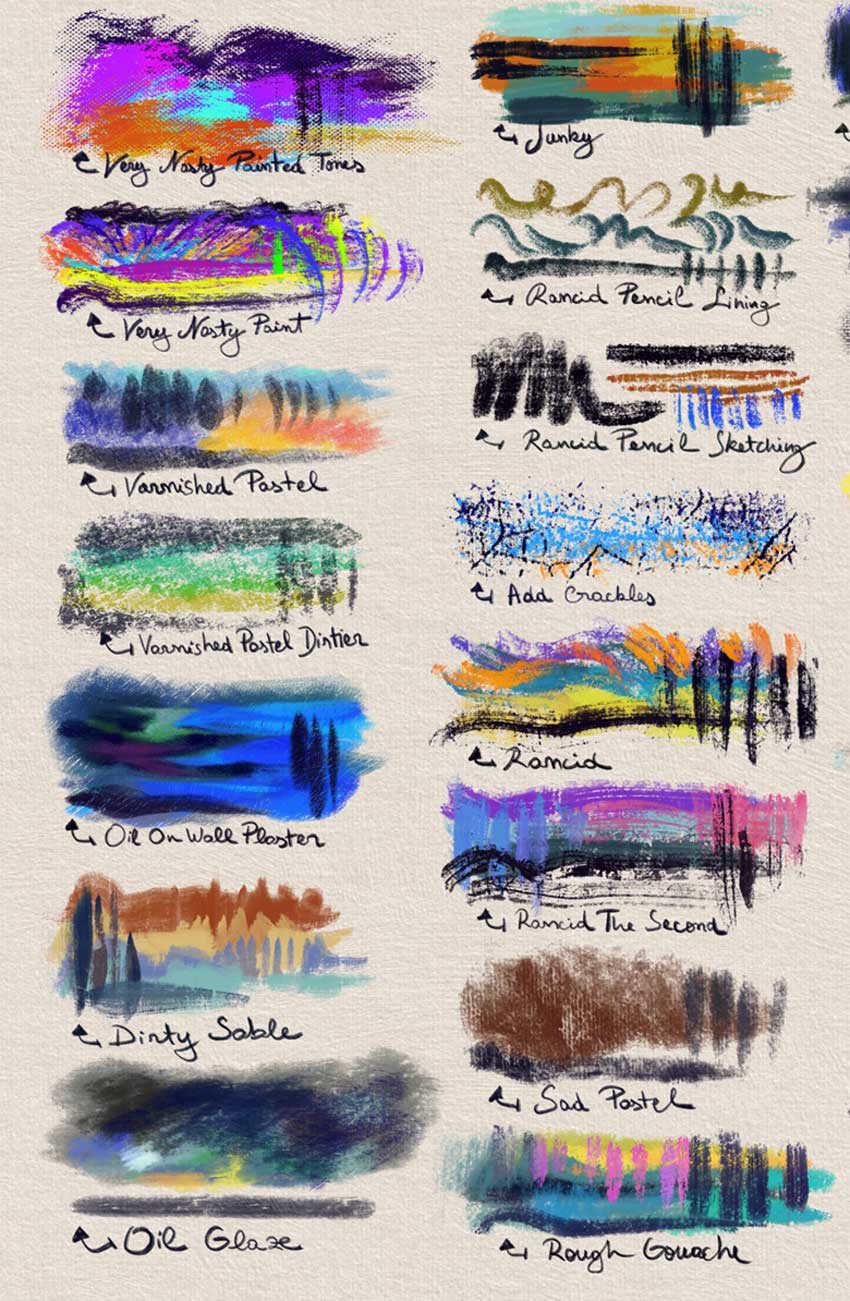 Very Nasty Painted Tones
Very Nasty Paint
Varnished Pastel
Varnished Pastel Dirtier
Oil On Wall Plaster
Dirty Sable
Oil Glaze
Junky
Rancid Pencil Lining
Rancid Pencil Sketching
Add Crackles
Rancid
Rancid The Second
Sad Pastel
Rough Gouache